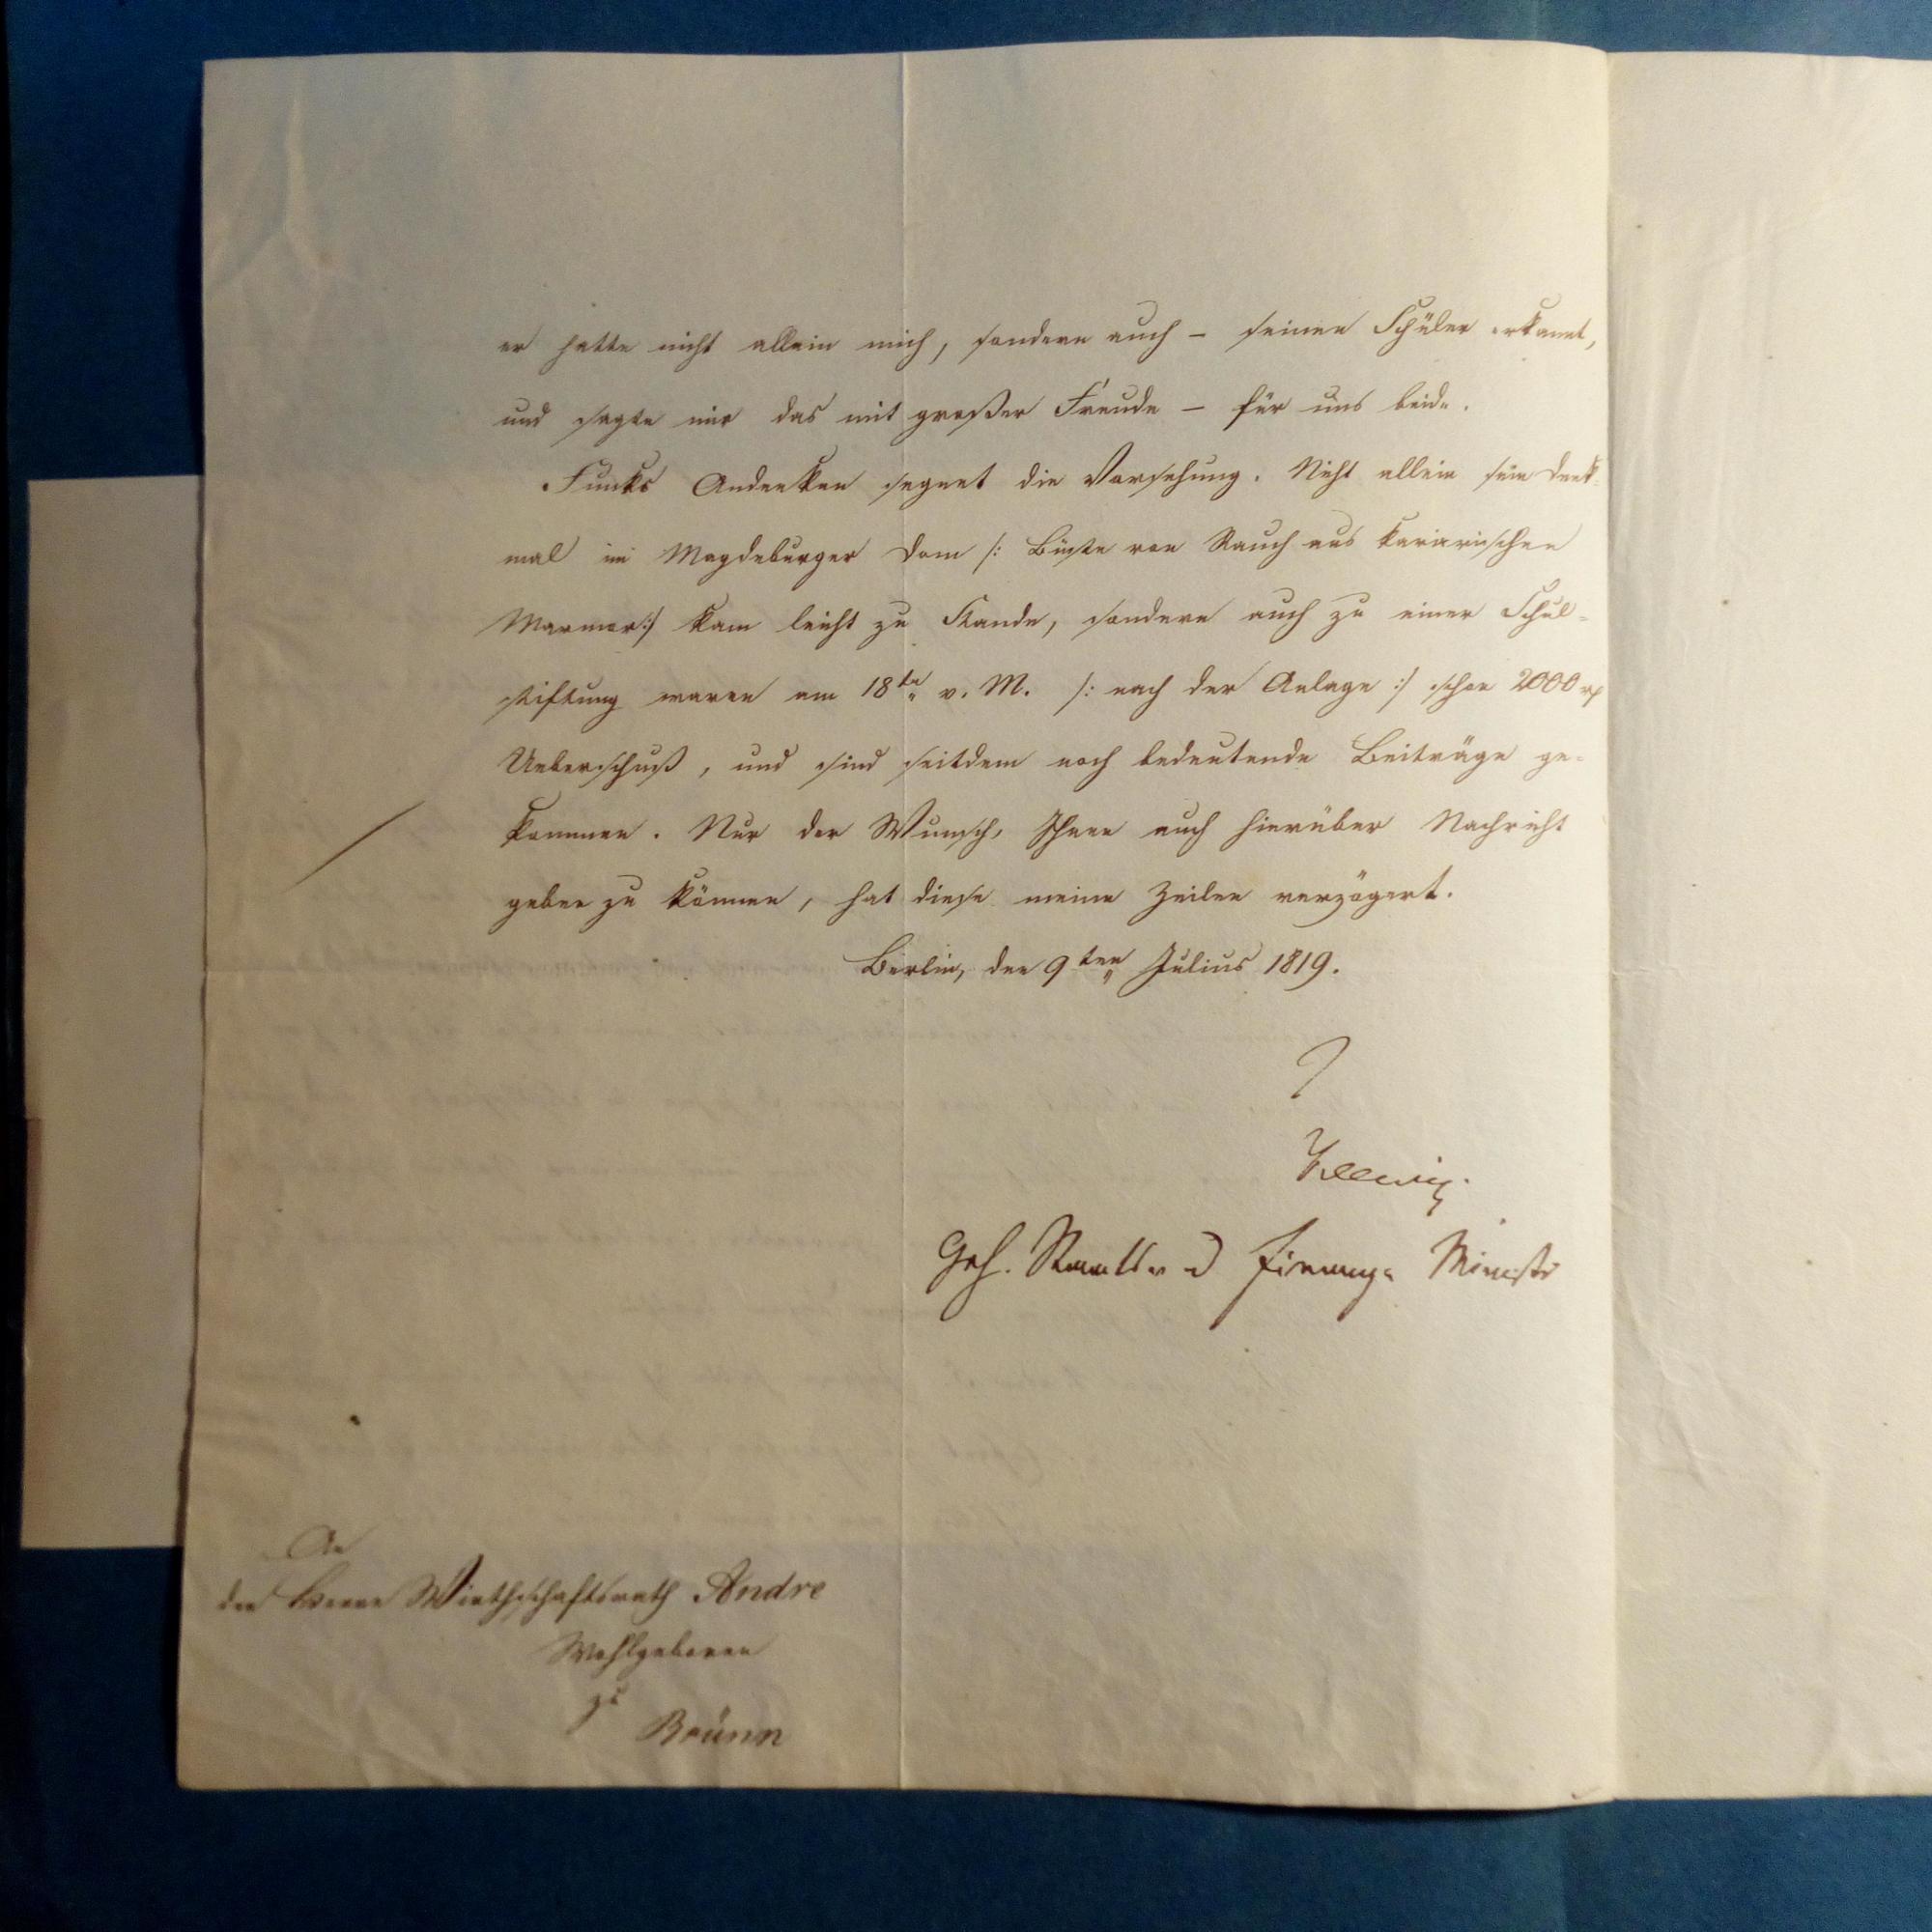 er hatte nicht allein mich, sondern auch – seinen Schüler erkannt,
und sagte mir das mit großer Freude – für uns beide.
Funks Andenken segnet die Vorsehung. Nicht allein sein Denk-
mal im Magdeburger Dom /: Büste von Rauch aus kararischen
Marmor :/ kam leicht zu Stande, sondern auch zu einer Schul-
stiftung waren am 18ten v. M. /: nach der Anlage :/ schon 2000 rf
Ueberschuß, und sind seitdem noch bedeutende Beiträge ge-
kommen. Nur der Wunsch, Ihnen auch hierüber Nachricht
geben zu können, hat diese meine Zeilen verzögert.
Berlin, den 9ten Julius 1819.
Geh. Staats u Finanz Ministr
An
den Herrn Wirthschaftsrath Andre
Wohlgeboren
zu
Brünn